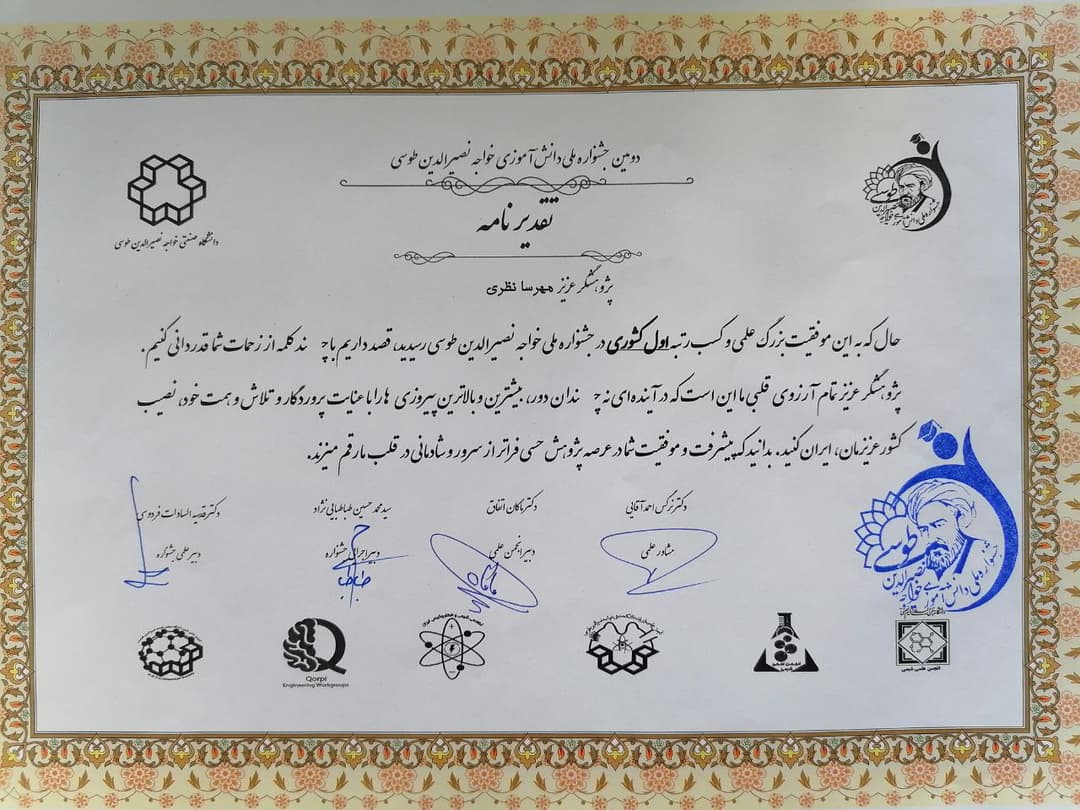 دومین جشنواره ملی دانش آموزی خواجه نصیرالدین طوسی
تقدیر نامه
دانشگاه صنعتی خواجه نصیرالدین طوسی
طوسی
جشنواره ملی دانش آموزی خواجه نصیرالدین
پژوهشگر عزیز مهرسا نظری
حال که به این موفقیت بزرگ علمی و کسب رتبه اول کشوری در جشنواره ملی خواجه نصیرالدین طوسی رسیدید، قصد داریم با چ ند کلمه از زحمات شما قدردانی کنیم.
پژوهشگر عزیز تمام آرزوی قلبی ما این است که در آینده ای نه چ ندان دور، بیشترین و بالاترین پیروزی ها را با عنایت پروردگار و تلاش و همت خود، نصیب
کشور عزیزمان، ایران کنید. بدانید که پیشرفت و موفقیت شما در عرصه پژوهش حسی فراتر از سرور و شادمانی در قلب ما رقم میزند.
دکتر نرگس احمدآقایی
دکتر ماکان اتفاق
سید محمد حسین طباطبایی نژاد
دکتر قدسیه السادات فردوسی
مشاور علمی
دبیر انجمن علمی
دبیر اجرایی جشنواره
دبیر علمی جشنواره
طوسی
جشنواره ملی دانش آموزی خواجه نصیرالدین
Qorpi
Engineering Workgroups
انجمن علمی شیمی